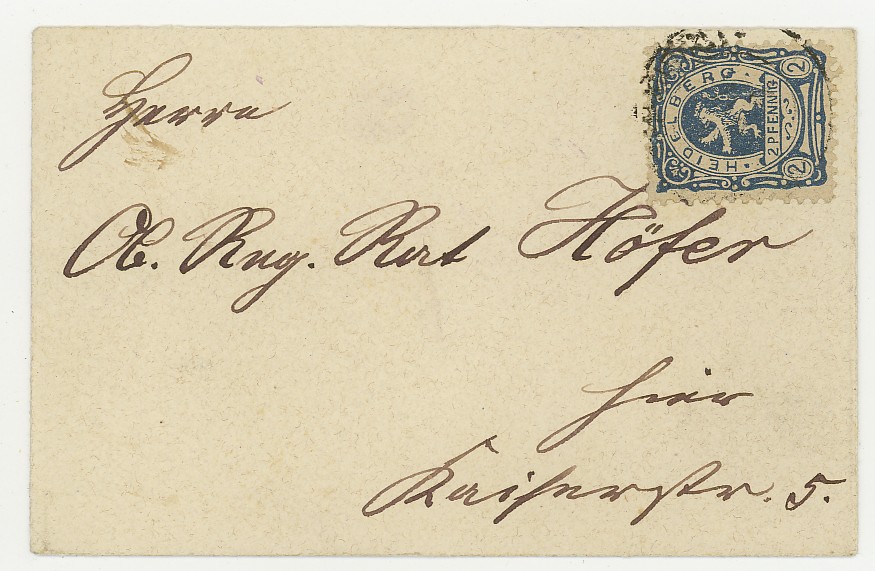 HEIDELBERG
2 PFENNIG
2
2
Herrn
Ob. Reg. Rat Höfer
hier
Kaiserstr. 5.